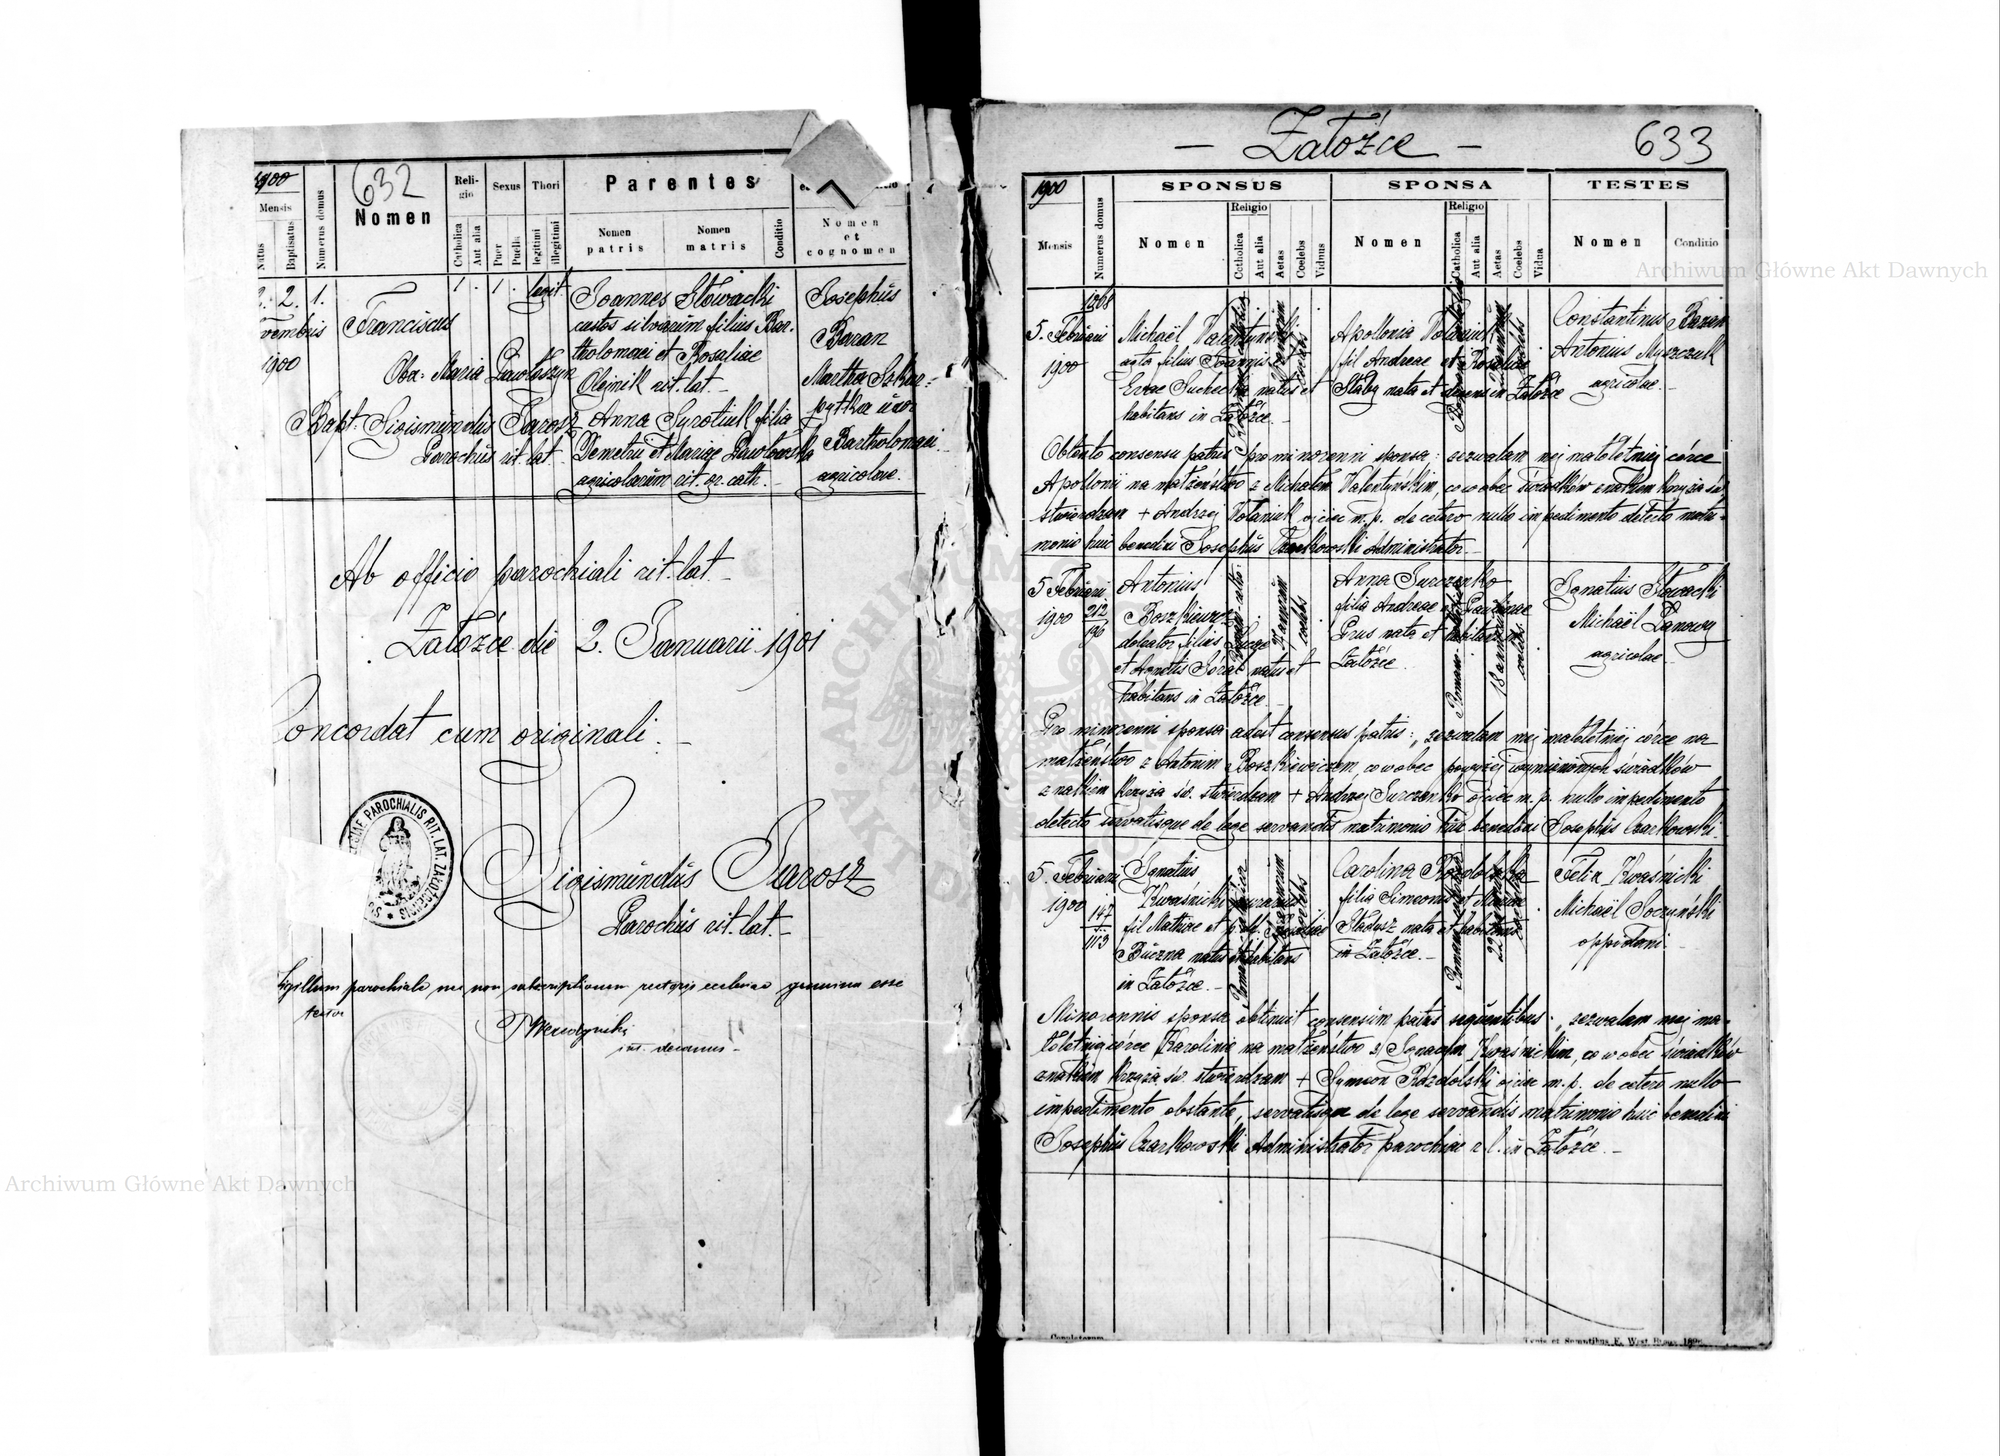 632
1900
Mensis
Natus
Baptisatus
Numerus domus
Nomen
Reli-
gio
Catholica
Aut alia
Sexus
Puer
Puella
Thori
legitimi
illegitimi
Parentes
Nomen
patris
Nomen
matris
Conditio
Nomen
et
cognomen
2. 1.
vembris
1900
Franciscus
Obs: Maria
Bapt: Sigismundus Jarosz
Parochus rit. lat.
1 . 1 . legit.
Joannes Słowacki
custos silvarum filius Bar-
tholomaei et Rosaliae
Olejnik rit. lat.
Anna Syrotiuk filia
Demetri et Mariae
agricolarum rit. gr. cath.
Josephus
Baran
Martha
uxor
Bartholomaei
agricolae.
Ab officio parochiali rit. lat.
Załoźce die 2. Januarii 1901
Concordat cum originali.
PAROCHIALIS RIT. LAT. ZAŁOŹCENSIS
Sigismundus Jarosz
Parochus rit. lat.
Sigillum parochiale nec non subscriptionem rectoris ecclesiae genuina esse
testor
decanus
- Załoźce -
633
1900
Mensis
Numerus domus
SPONSUS
Nomen
Religio
Catholica
Aut alia
Aetas
Coelebs
Viduus
SPONSA
Nomen
Religio
Catholica
Aut alia
Aetas
Coelebs
Vidua
TESTES
Nomen
Conditio
1068
5. Februarii
1900
Michaël Walentynski
filius Joannis
Evae natus et
habitans in Załoźce.
Apollonia Wołaniuk
fil Andreae et Rosaliae
nata et degens in Załoźce
Constantinus Baran
Antonius Myszczuk
agricolae.
Obtento consensu patris pro minorenni sponsa: zezwalam mej małoletniej córce
Apollonii na małżeństwo z Michałem Walentyńskim, co wobec świadków znakiem krzyża św.
stwierdzam + Andrzej Wołaniuk ojciec m. p. de cetero nullo impedimento detecto matri-
monio huic benedixi Josephus Czarkowski Administrator
5 Februarii
1900
212
196
Antonius
Boszkiewicz
filius Lucae
et Agnetis natus et
habitans in Załoźce
Anna Jurczenko
filia Andreae et Paulinae
nata et habitans in
Załoźce.
18 annorum
coelebs
Ignatius Słowacki
Michaël Łanowy
agricolae
Pro minorenni sponsa adest consensus patris: „zezwalam mej małoletniej córce na
małżeństwo z Antonim Boszkiewiczem, co wobec powyżej wymienionych świadków
znakiem krzyża św. stwierdzam + Andrzej Jurczenko ojciec m. p. nullo impedimento
detecto servatisque de lege servandis matrimonio huic benedixi Josephus Czarkowski.
5. Februarii
1900
147
1113
Ignatius
Kwaśnicki
fil Mathiae et
natus et habitans
in Załoźce.
Carolina Rozdolska
filia Simeonis et Mariae
nata et habitans
in Załoźce.
Felix Kwaśnicki
Michaël Soczyński
oppidani.
Minorennis sponsa obtinuit consensum patris sequentibus: „zezwalam mej ma-
łoletniej córce Karolinie na małżeństwo z Ignacym Kwaśnickim, co wobec świadków
znakiem krzyża św. stwierdzam + Symeon Rozdolski ojciec m. p. de cetero nullo
impedimento obstante, servatisque de lege servandis matrimonio huic benedixi
Josephus Czarkowski Administrator parochiae r. l. in Załoźce.
Copulatorum
Typis et Sumptibus E. West, Brody
Archiwum Główne Akt Dawnych
Archiwum Główne Akt Dawnych